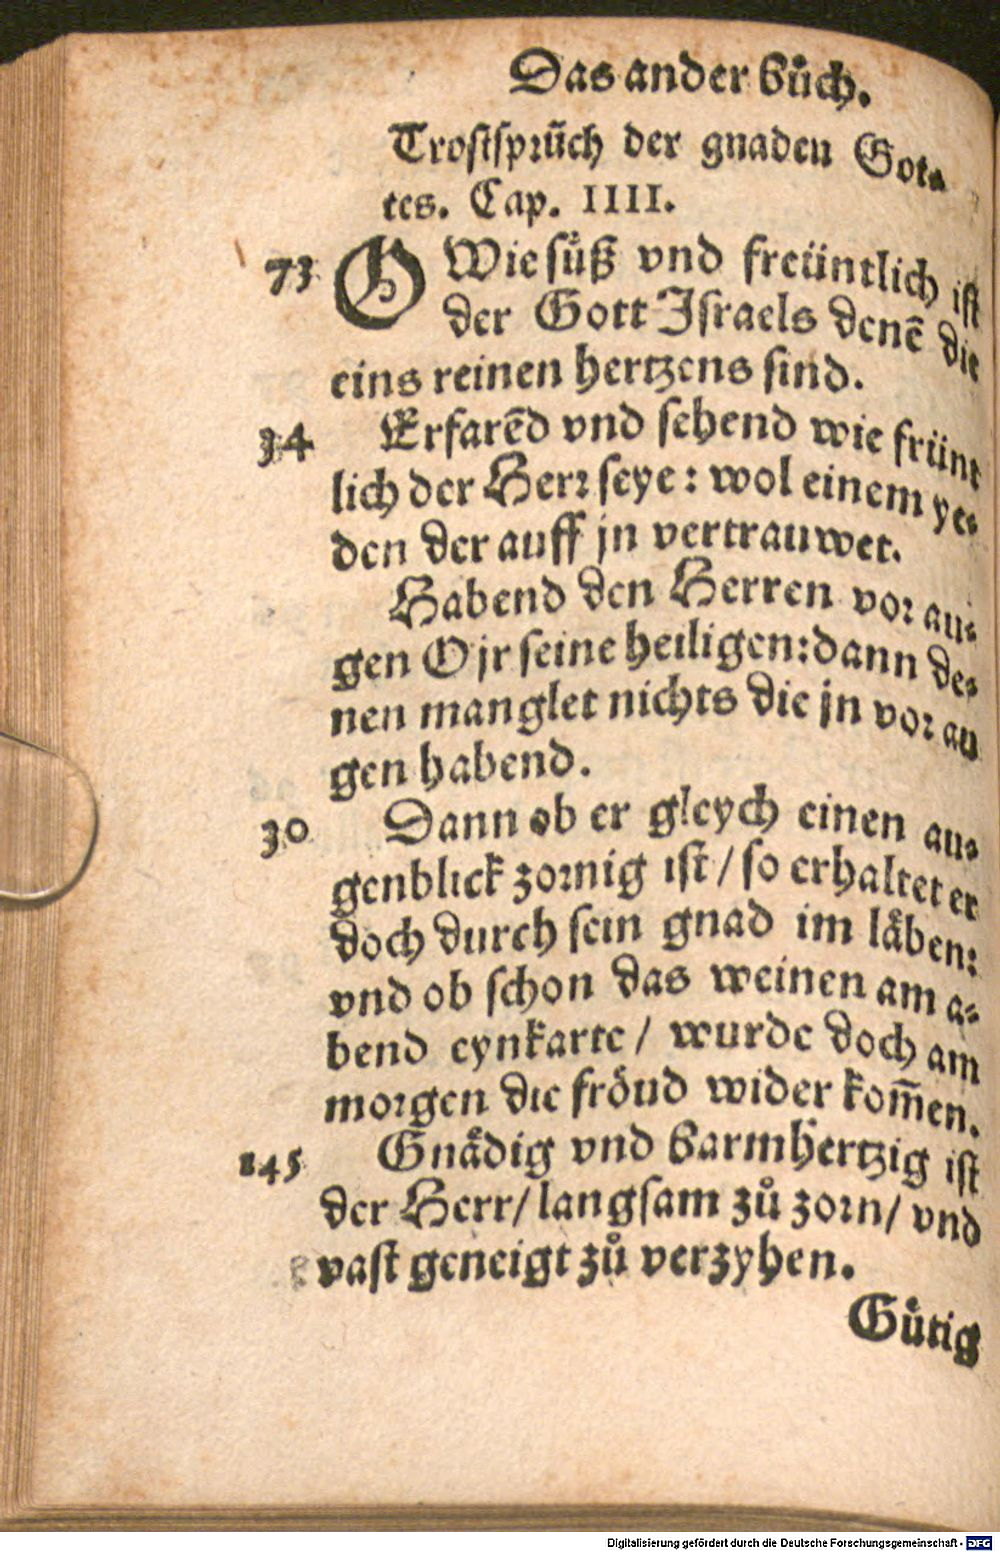 Das ander Bůch.
Trostsprüch der gnaden Got-
tes. Cap. IIII.
73 O Wie süß vnd freüntlich ist
der Gott Israels denē die
eins reinen hertzens sind.
34 Erfarēd vnd sehend wie frünt
lich der Herr seye: wol einem ye-
den der auff jn vertrauwet.
Habend den Herren vor au-
gen O jr seine heiligen: dann de-
nen manglet nichts die jn vor au
gen habend.
30 Dann ob er gleych einen au-
genblick zornig ist / so erhaltet er
doch durch sein gnad im låben:
vnd ob schon das weinen am a-
bend eynkarte / wurde doch am
morgen die fröud wider kom̄en.
145 Gnådig vnd barmhertzig ist
der Herr / langsam zů zorn / vnd
vast geneigt zů verzyhen.
Gůtig
Digitalisierung gefördert durch die Deutsche Forschungsgemeinschaft - DFG